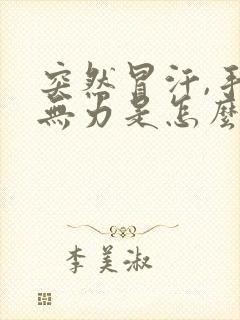 突然冒汗,手
無力是怎麼
李美淑